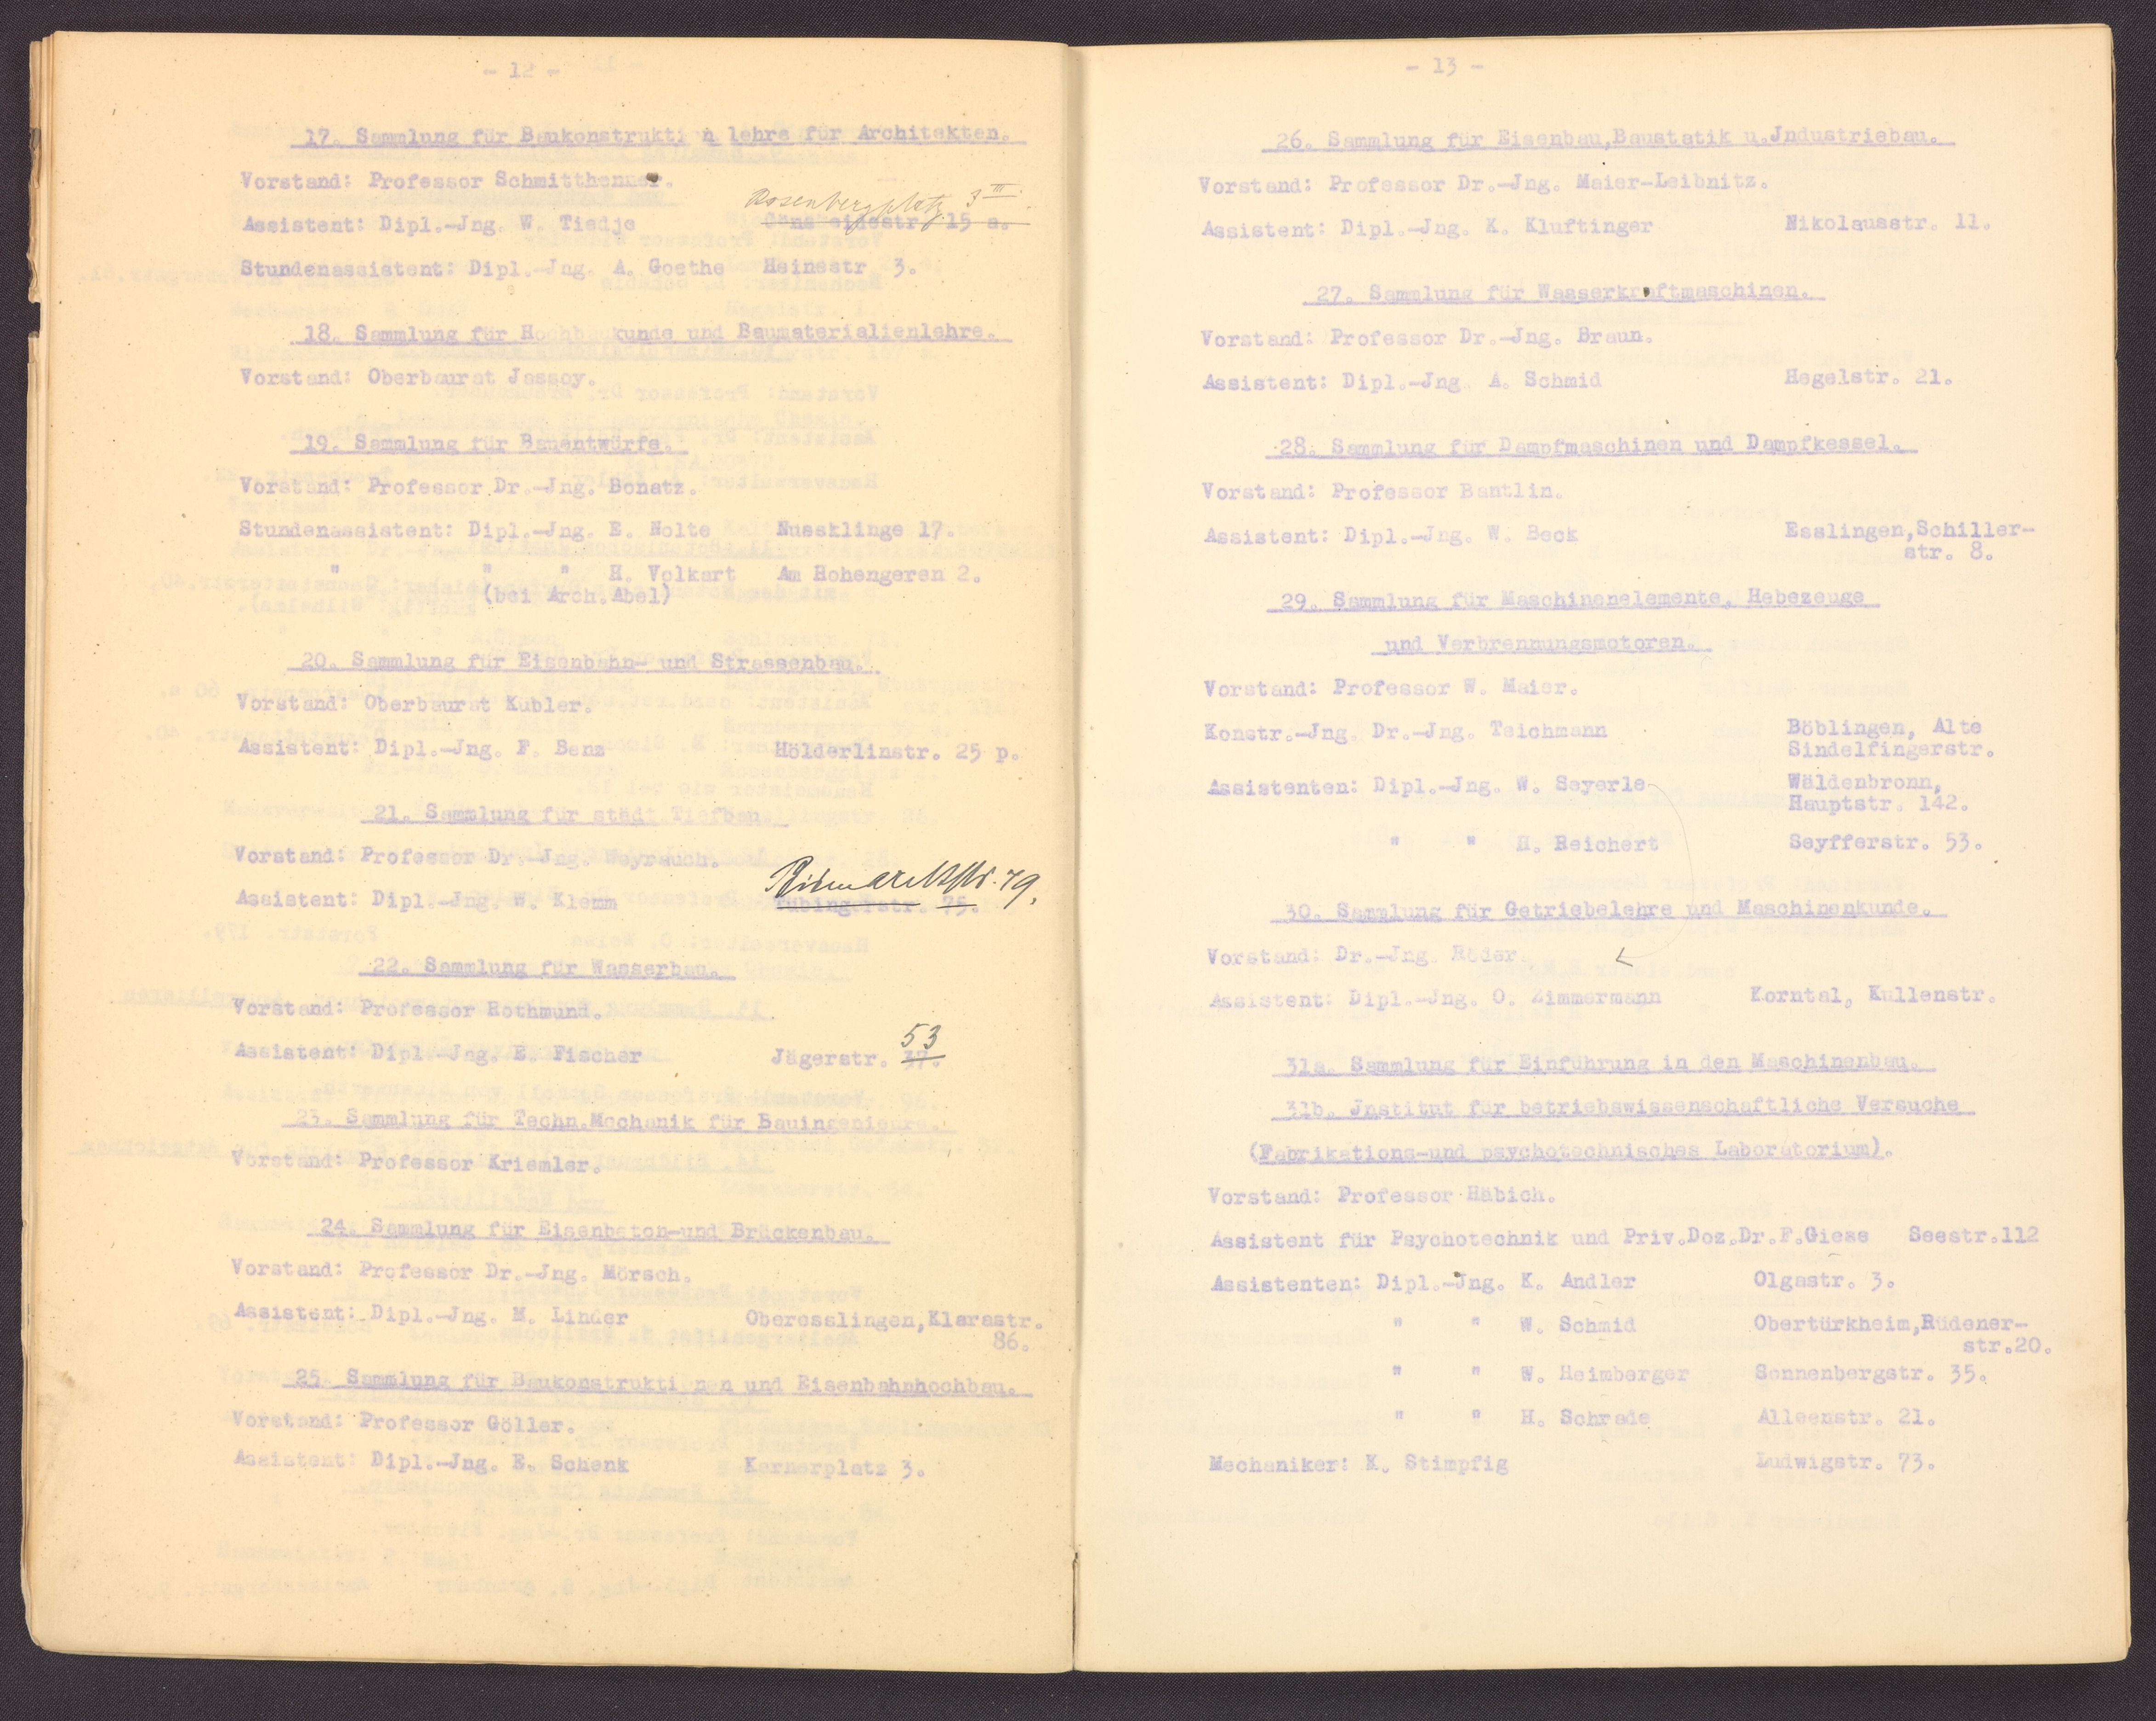 - 12 -
17. Sammlung für Baukonstrukti n lehre für Architekten.
Vorstand: Professor Schmitthenner.
Rosenbergplatz 3 III.
Assistent: Dipl.-Jng. W. Tiedje 15 a.
Stundenassistent: Dipl.-Jng. A. Goethe Heinestr 3.
18. Sammlung für Hochbaukunde und Baumaterialienlehre.
Vorstand: Oberbaurat Jassoy.
19. Sammlung für Bauentwürfe.
Vorstand: Professor Dr.-Jng. Bonatz.
Stundenassistent: Dipl.-Jng. E. Nolte Nussklinge 17.
" " " H. Volkart Am Hohengeren 2.
(bei Arch.Abel)
20. Sammlung für Eisenbahn- und Strassenbau.
Vorstand: Oberbaurat Kübler.
Assistent: Dipl.-Jng. F. Benz Hölderlinstr. 25 p.
21. Sammlung für städt Tiefbau
Vorstand: Professor Dr.-Jng. Weyrauch.
Bismarckstr. 79.
Assistent: Dipl.-Jng. W. Klemm Tübingerstr. 75.
22. Sammlung für Wasserbau.
Vorstand: Professor Rothmund.
53
Assistent: Dipl.-Jng. E. Fischer Jägerstr. 37.
23. Sammlung für Techn.Mechanik für Bauingenieure.
Vorstand: Professor Kriemler.
24. Sammlung für Eisenbeton-und Brückenbau.
Vorstand: Professor Dr.-Jng. Mörsch.
Assistent: Dipl.-Jng. M. Linder Oberesslingen,Klarastr.
86.
25. Sammlung für Baukonstrukti nen und Eisenbahnhochbau.
Vorstand: Professor Göller.
Assistent: Dipl.-Jng. E. Schenk Kernerplatz 3.
- 13 -
26. Sammlung für Eisenbau,Baustatik u.Jndustriebau.
Vorstand: Professor Dr.-Jng. Maier-Leibnitz.
Assistent: Dipl.-Jng. K. Kluftinger Nikolausstr. 11.
27. Sammlung für Wasserkraftmaschinen.
Vorstand: Professor Dr.-Jng. Braun.
Assistent: Dipl.-Jng. A. Schmid Hegelstr. 21.
28. Sammlung für Dampfmaschinen und Dampfkessel.
Vorstand: Professor Bantlin.
Assistent: Dipl.-Jng. W. Beck Esslingen,Schiller-
str. 8.
29. Sammlung für Maschinenelemente, Hebezeuge
und Verbrennungsmotoren.
Vorstand: Professor W. Maier.
Konstr.-Jng. Dr.-Jng. Teichmann Böblingen, Alte
Sindelfingerstr.
Assistenten: Dipl.-Jng. W. Seyerle Wäldenbronn,
Hauptstr. 142.
" " H. Reichert Seyfferstr. 53.
30. Sammlung für Getriebelehre und Maschinenkunde.
Vorstand: Dr.-Jng. Röder.
Assistent: Dipl.-Jng. O. Zimmermann Korntal, Kullenstr.
31a. Sammlung für Einführung in den Maschinenbau.
31b. Jnstitut für betriebswissenschaftliche Versuche
(Fabrikations-und psychotechnisches Laboratorium).
Vorstand: Professor Häbich.
Assistent für Psychotechnik und Priv.Doz.Dr.F.Giese Seestr.112
Assistenten: Dipl.-Jng. K. Andler Olgastr. 3.
" " W. Schmid Obertürkheim,Rüdener-
str.20.
" " W. Heimberger Sonnenbergstr. 35.
" " H. Schrade Alleenstr. 21.
Mechaniker: K. Stimpfig Ludwigstr. 73.